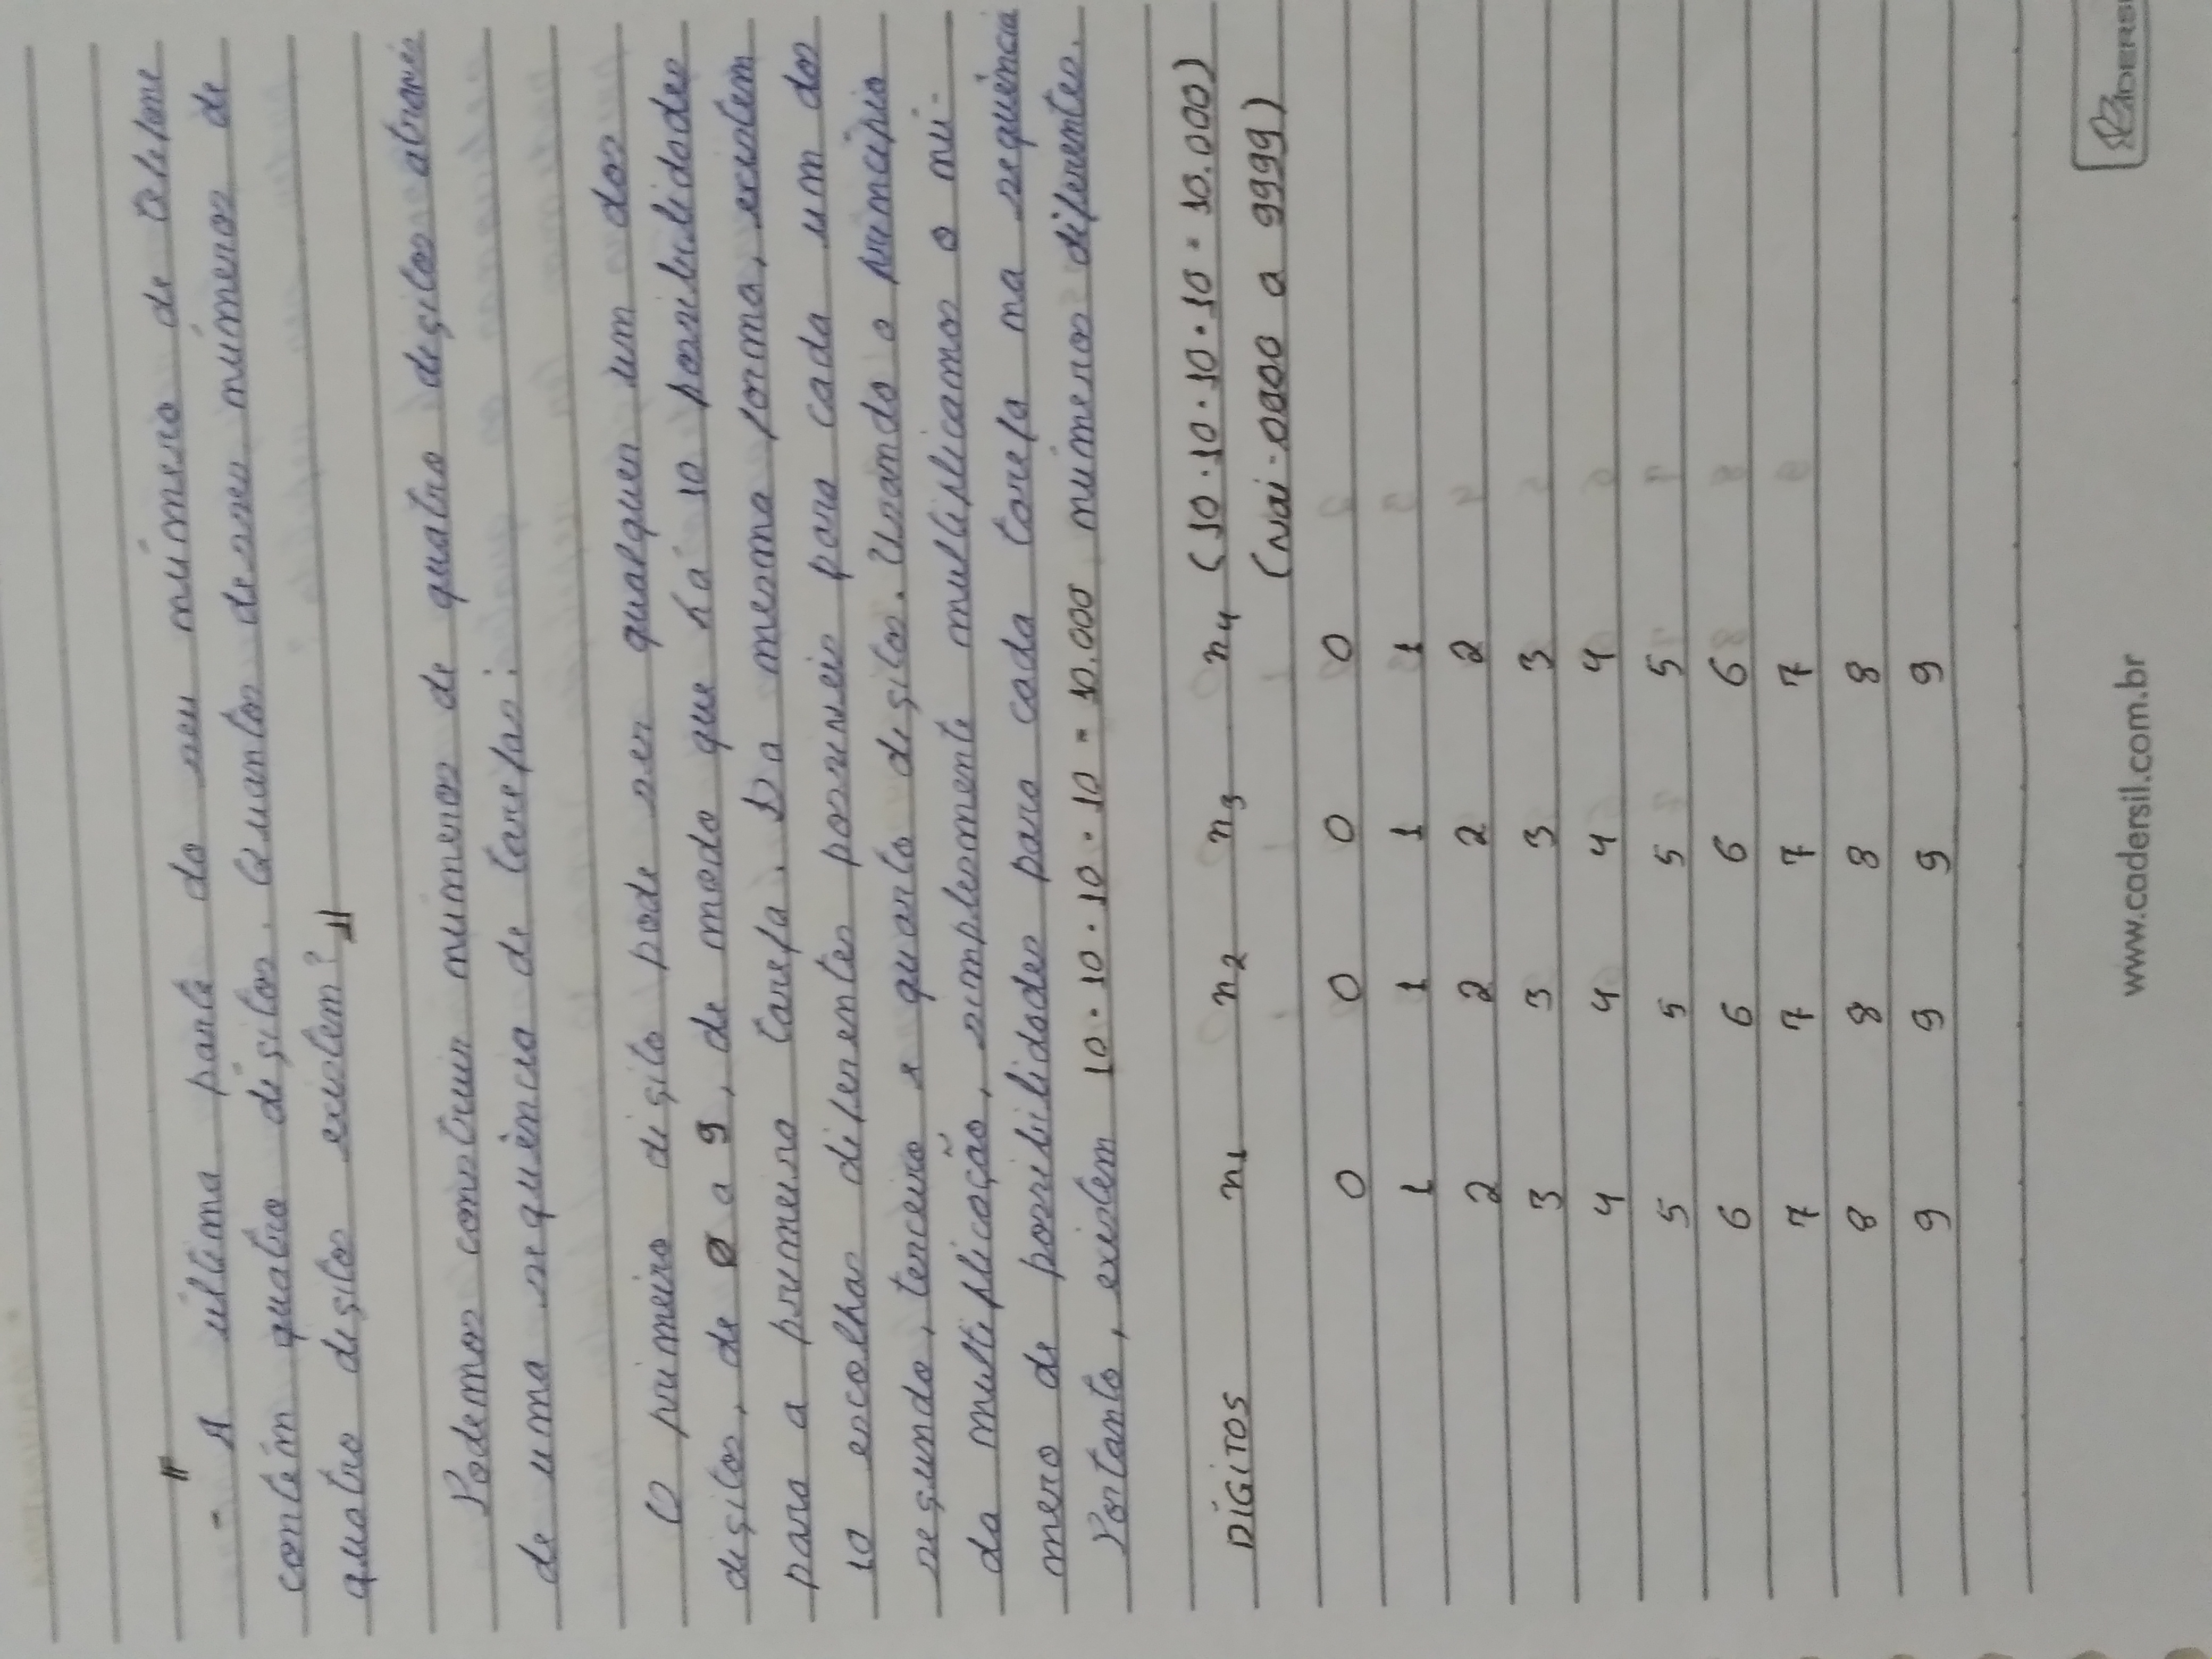 - "A última parte do seu número de telefone
contém quatro dígitos. Quantos desses números de
quatro dígitos existem?"
Podemos construir números de quatro dígitos através
de uma sequência de tarefas:
O primeiro dígito pode ser qualquer um dos
dígitos, de 0 a 9, de modo que há 10 possibilidades
para a primeira tarefa. Da mesma forma, existem
10 escolhas diferentes possíveis para cada um dos
segundo, terceiro e quarto dígitos. Usando o princípio
da multiplicação, simplesmente multiplicamos o nú-
mero de possibilidades para cada tarefa na sequência
Portanto, existem 10 . 10 . 10 . 10 = 10.000 números diferentes.
DÍGITOS n1 n2 n3 n4 (10 . 10 . 10 . 10 = 10.000)
(Vai - 0000 a 9999)
0 0 0 0
1 1 1 1
2 2 2 2
3 3 3 3
4 4 4 4
5 5 5 5
6 6 6 6
7 7 7 7
8 8 8 8
9 9 9 9
www.cadersil.com.br